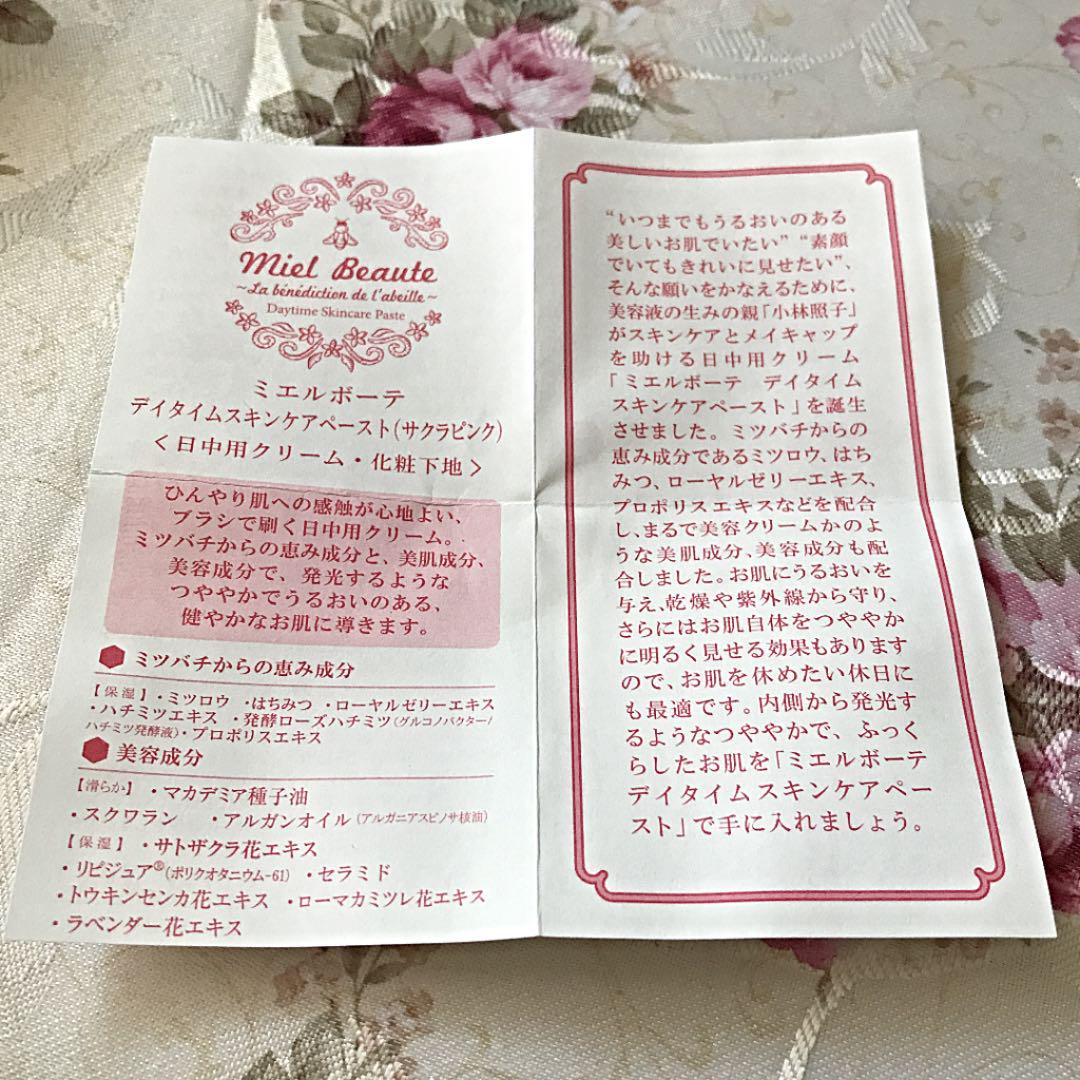 Miel Beaute
~La bénédiction de l'abeille~
Daytime Skincare Paste
ミエルボーテ
デイタイムスキンケアペースト(サクラピンク)
<日中用クリーム・化粧下地>
ひんやり肌への感触が心地よい、
ブラシで刷く日中用クリーム。
ミツバチからの恵み成分と、美肌成分、
美容成分で、発光するような
つややかでうるおいのある、
健やかなお肌に導きます。
ミツバチからの恵み成分
【保湿】・ミツロウ ・はちみつ ・ローヤルゼリーエキス
・ハチミツエキス ・発酵ローズハチミツ(グルコノバクター/
ハチミツ発酵液)・プロポリスエキス
美容成分
【滑らか】・マカデミア種子油
・スクワラン ・アルガンオイル(アルガニアスピノサ核油)
【保湿】・サトザクラ花エキス
・リピジュア®(ポリクオタニウム-61) ・セラミド
・トウキンセンカ花エキス ・ローマカミツレ花エキス
・ラベンダー花エキス
“いつまでもうるおいのある
美しいお肌でいたい” “素顔
でいてもきれいに見せたい”、
そんな願いをかなえるために、
美容液の生みの親「小林照子」
がスキンケアとメイキャップ
を助ける日中用クリーム
「ミエルボーテ デイタイム
スキンケアペースト」を誕生
させました。ミツバチからの
恵み成分であるミツロウ、はち
みつ、ローヤルゼリーエキス、
プロポリスエキスなどを配合
し、まるで美容クリームかのよ
うな美肌成分、美容成分も配
合しました。お肌にうるおいを
与え、乾燥や紫外線から守り、
さらにはお肌自体をつややか
に明るく見せる効果もあります
ので、お肌を休めたい休日に
も最適です。内側から発光す
るようなつややかで、ふっく
らしたお肌を「ミエルボーテ
デイタイムスキンケアペー
スト」で手に入れましょう。